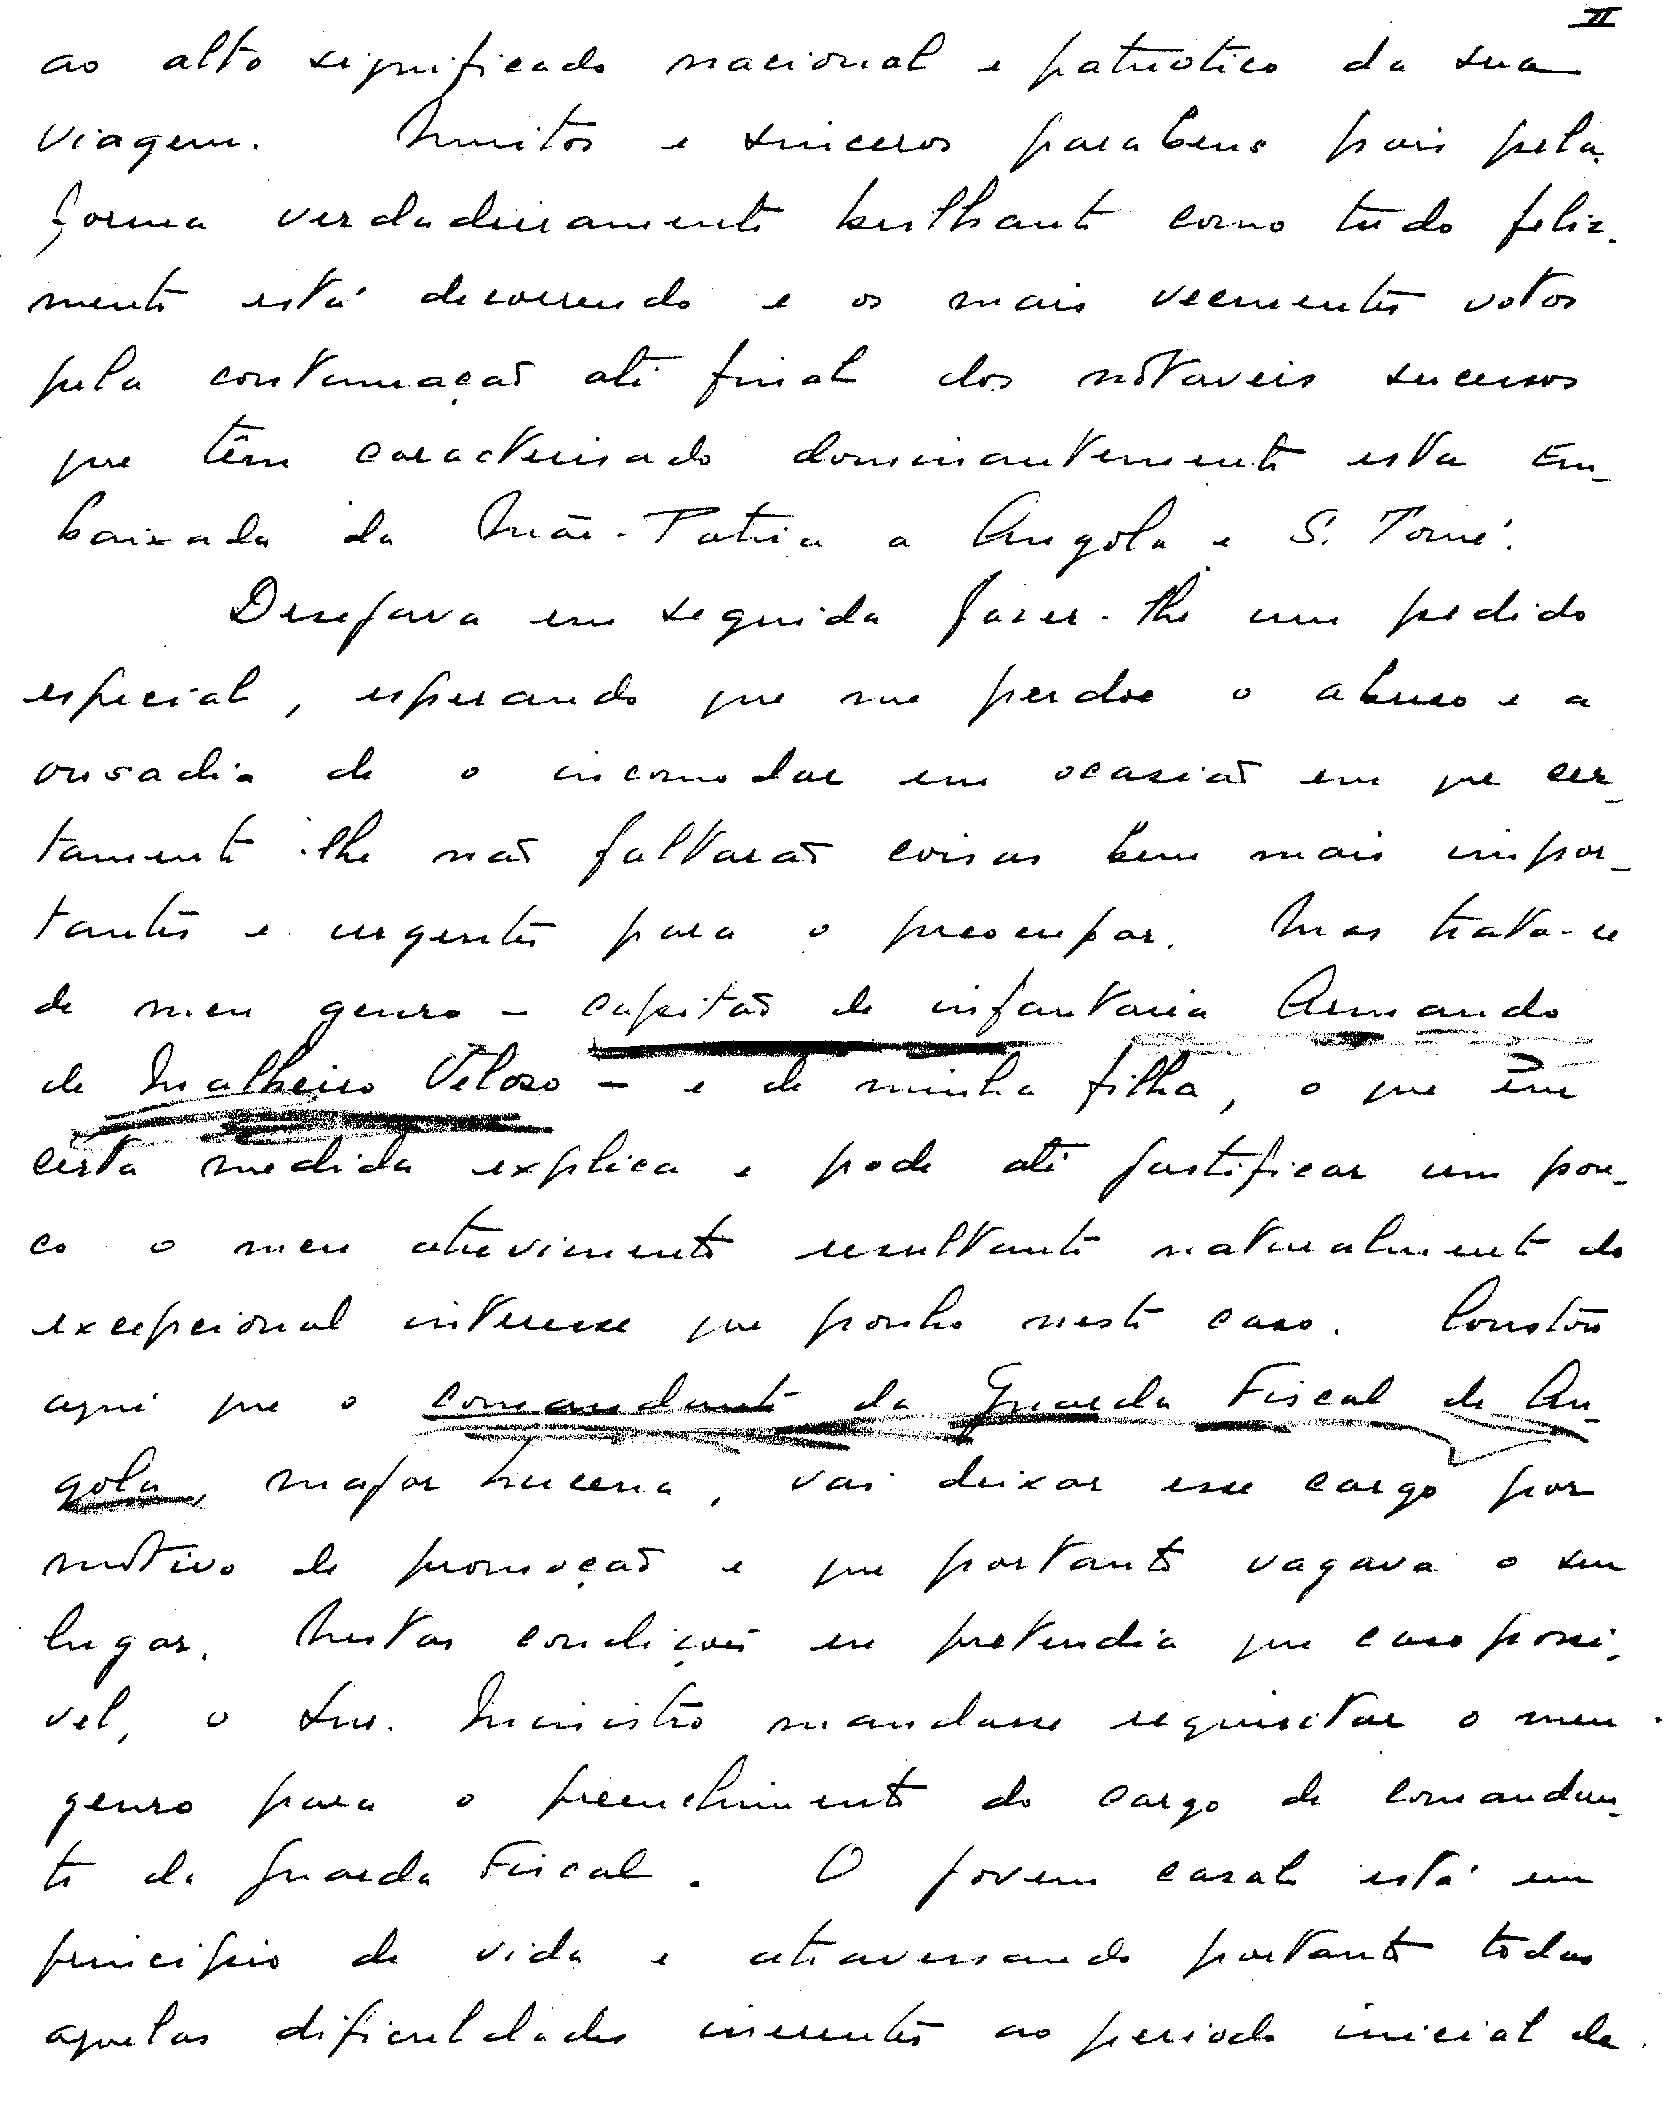 II
ao alto significado nacional e patriotico da sua
viagem. Muitos e sinceros parabens pois pela
forma verdadeiramente brilhante como tudo feliz-
mente está decorrendo e os mais veementes votos
pela continuação até final dos notaveis sucessos
que têm caracterisado dominantemente esta Em-
baixada da Mãe-Patria a Angola e S. Tomé.
Desejava em seguida fazer-lhe um pedido
especial, esperando que me perdoe o abuso e a
ousadia de o incomodar em ocasião em que cer-
tamente lhe não faltarão coisas bem mais impor-
tantes e urgentes para o preocupar. Mas trata-se
de meu genro - capitão de infantaria Armando
de Malheiro Veloso - e de minha filha, o que em
certa medida explica e pode até justificar um pou-
co o meu atrevimento resultante naturalmente do
excepcional interesse que ponho neste caso. Constou
aqui que o comandante da Guarda Fiscal de An-
gola, major Lucena, vai deixar esse cargo por
motivo de promoção e que portanto vagava o seu
lugar. Nestas condições eu pretendia que caso possi-
vel, o Snr. Ministro mandasse requisitar o meu
genro para o preenchimento do cargo de comandan-
te da Guarda Fiscal. O jovem casal está em
principio de vida e atravessando portanto todas
aquelas dificuldades inerentes ao periodo inicial de